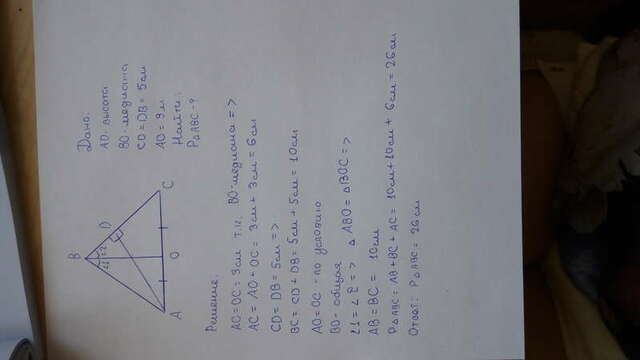 B
∠1 ∠2
D
A
O
C
Дано:
AD - высота
BO - медиана
CD = DB = 5см
AO = 3м
Найти:
P△ABC - ?
Решение:
AO = OC = 3см т.к. BO - медиана =>
AC = AO + OC = 3см + 3см = 6см
CD = DB = 5см =>
BC = CD + DB = 5см + 5см = 10см
AO = OC - по условию
BO - общая
∠1 = ∠2 => △ABO = △BOC =>
AB = BC = 10см
P△ABC = AB + BC + AC = 10см + 10см + 6см = 26см
Ответ: P△ABC = 26см